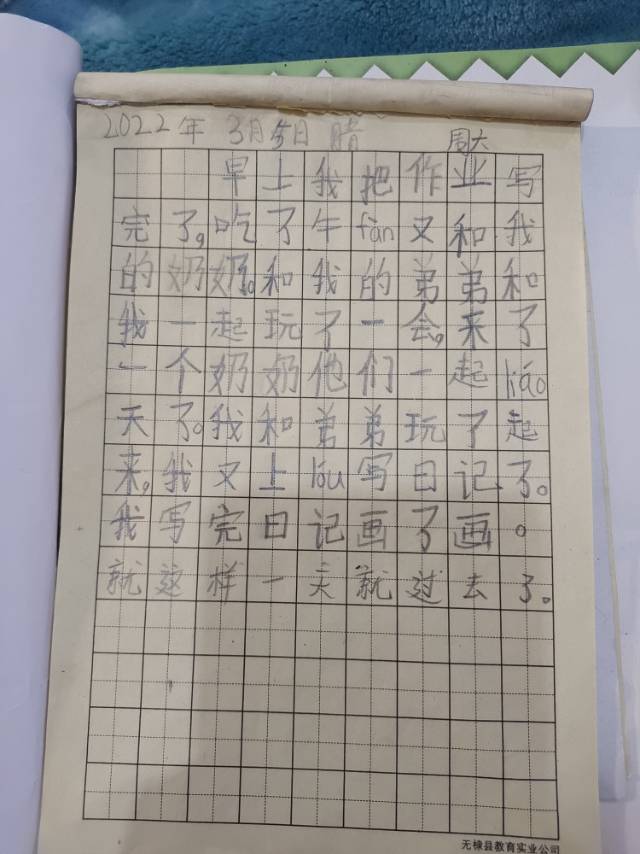 2022年 3月5日 晴 周六
早上我把作业写
完了,吃了午fàn又和我
的奶奶。和我的弟弟和
我一起玩了一会,来了
一个奶奶他们一起liáo
天了。我和弟弟玩了起
来,我又上lóu写日记了。
我写完日记画了画。
就这样一天就过去了。
无棣县教育实业公司